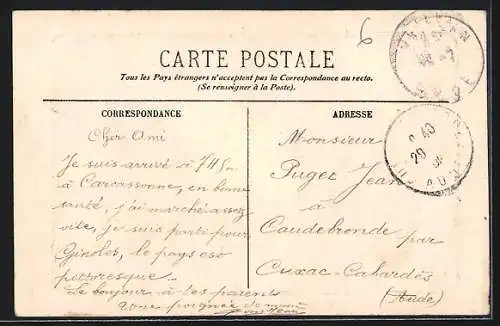 6
CARTE POSTALE
Tous les Pays étrangers n'acceptent pas la Correspondance au recto.
(Se renseigner à la Poste).
CORRESPONDANCE
Cher Ami
Je suis arrivé à 7 H
à Carcassonne, en bonne
santé, j'ai marché assez
vite, je suis parti pour
Ginoles, le pays est
pittoresque.
Le bonjour à tes parents
Une poignée de main
ADRESSE
Monsieur
Puget Jean
à
Caudebronde par
Cuxac-Cabardès
(Aude)